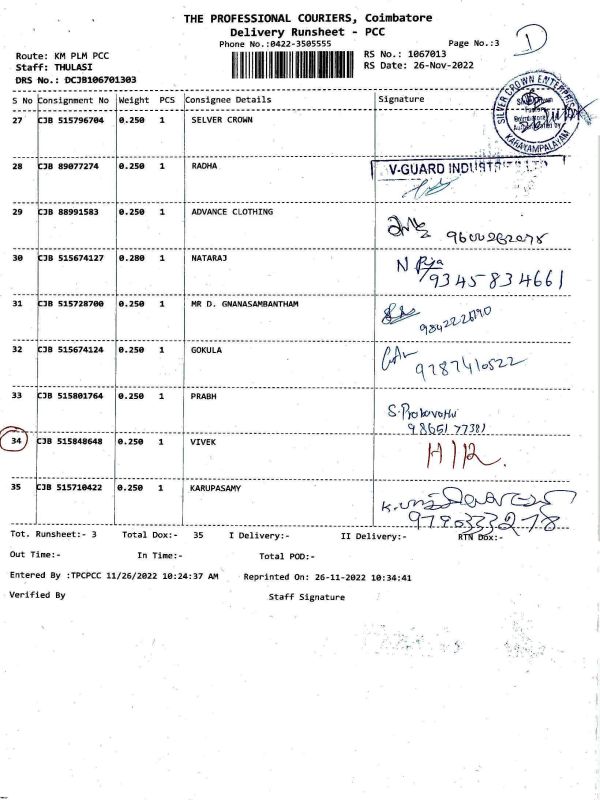 THE PROFESSIONAL COURIERS, Coimbatore
Delivery Runsheet - PCC
Phone No.:0422-3505555
Page No.:3
D
Route: KM PLM PCC
Staff: THULASI
DRS No.: DCJB106701303
RS No.: 1067013
RS Date: 26-Nov-2022
S No Consignment No Weight PCS Consignee Details Signature
27 CJB 515796704 0.250 1 SELVER CROWN
SILVER CROWN ENTERPRISES
KARAYAMPALAYAM
28 CJB 89077274 0.250 1 RADHA V-GUARD INDUSTRIES LTD
29 CJB 88991583 0.250 1 ADVANCE CLOTHING
30 CJB 515674127 0.280 1 NATARAJ N Priya 9345834661
31 CJB 515728700 0.250 1 MR D. GNANASAMBANTHAM
32 CJB 515674124 0.250 1 GOKULA 9787410522
33 CJB 515801764 0.250 1 PRABH 9865177381
34 CJB 515848648 0.250 1 VIVEK H/R.
35 CJB 515710422 0.250 1 KARUPASAMY
Tot. Runsheet:- 3 Total Dox:- 35 I Delivery:- II Delivery:- RTN Dox:-
Out Time:- In Time:- Total POD:-
Entered By :TPCPCC 11/26/2022 10:24:37 AM Reprinted On: 26-11-2022 10:34:41
Verified By Staff Signature